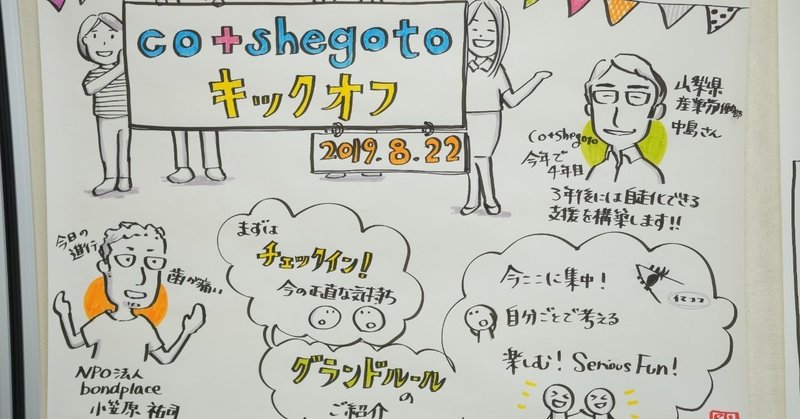 co+shegoto
キックオフ
2019.8.22
山梨県
産業労働部
中島さん
co+shegoto
今年で
4年目
3年後には自走化できる
支援を構築します!!
今日の
進行
歯が痛い
NPO法人
bondplace
小笠原 祐司
まずは
チェックイン!
今の正直な気持ち
グランドルール
の
ご紹介
今ここに集中!
イマココ
自分ごとで考える
楽しむ! Serious Fun!